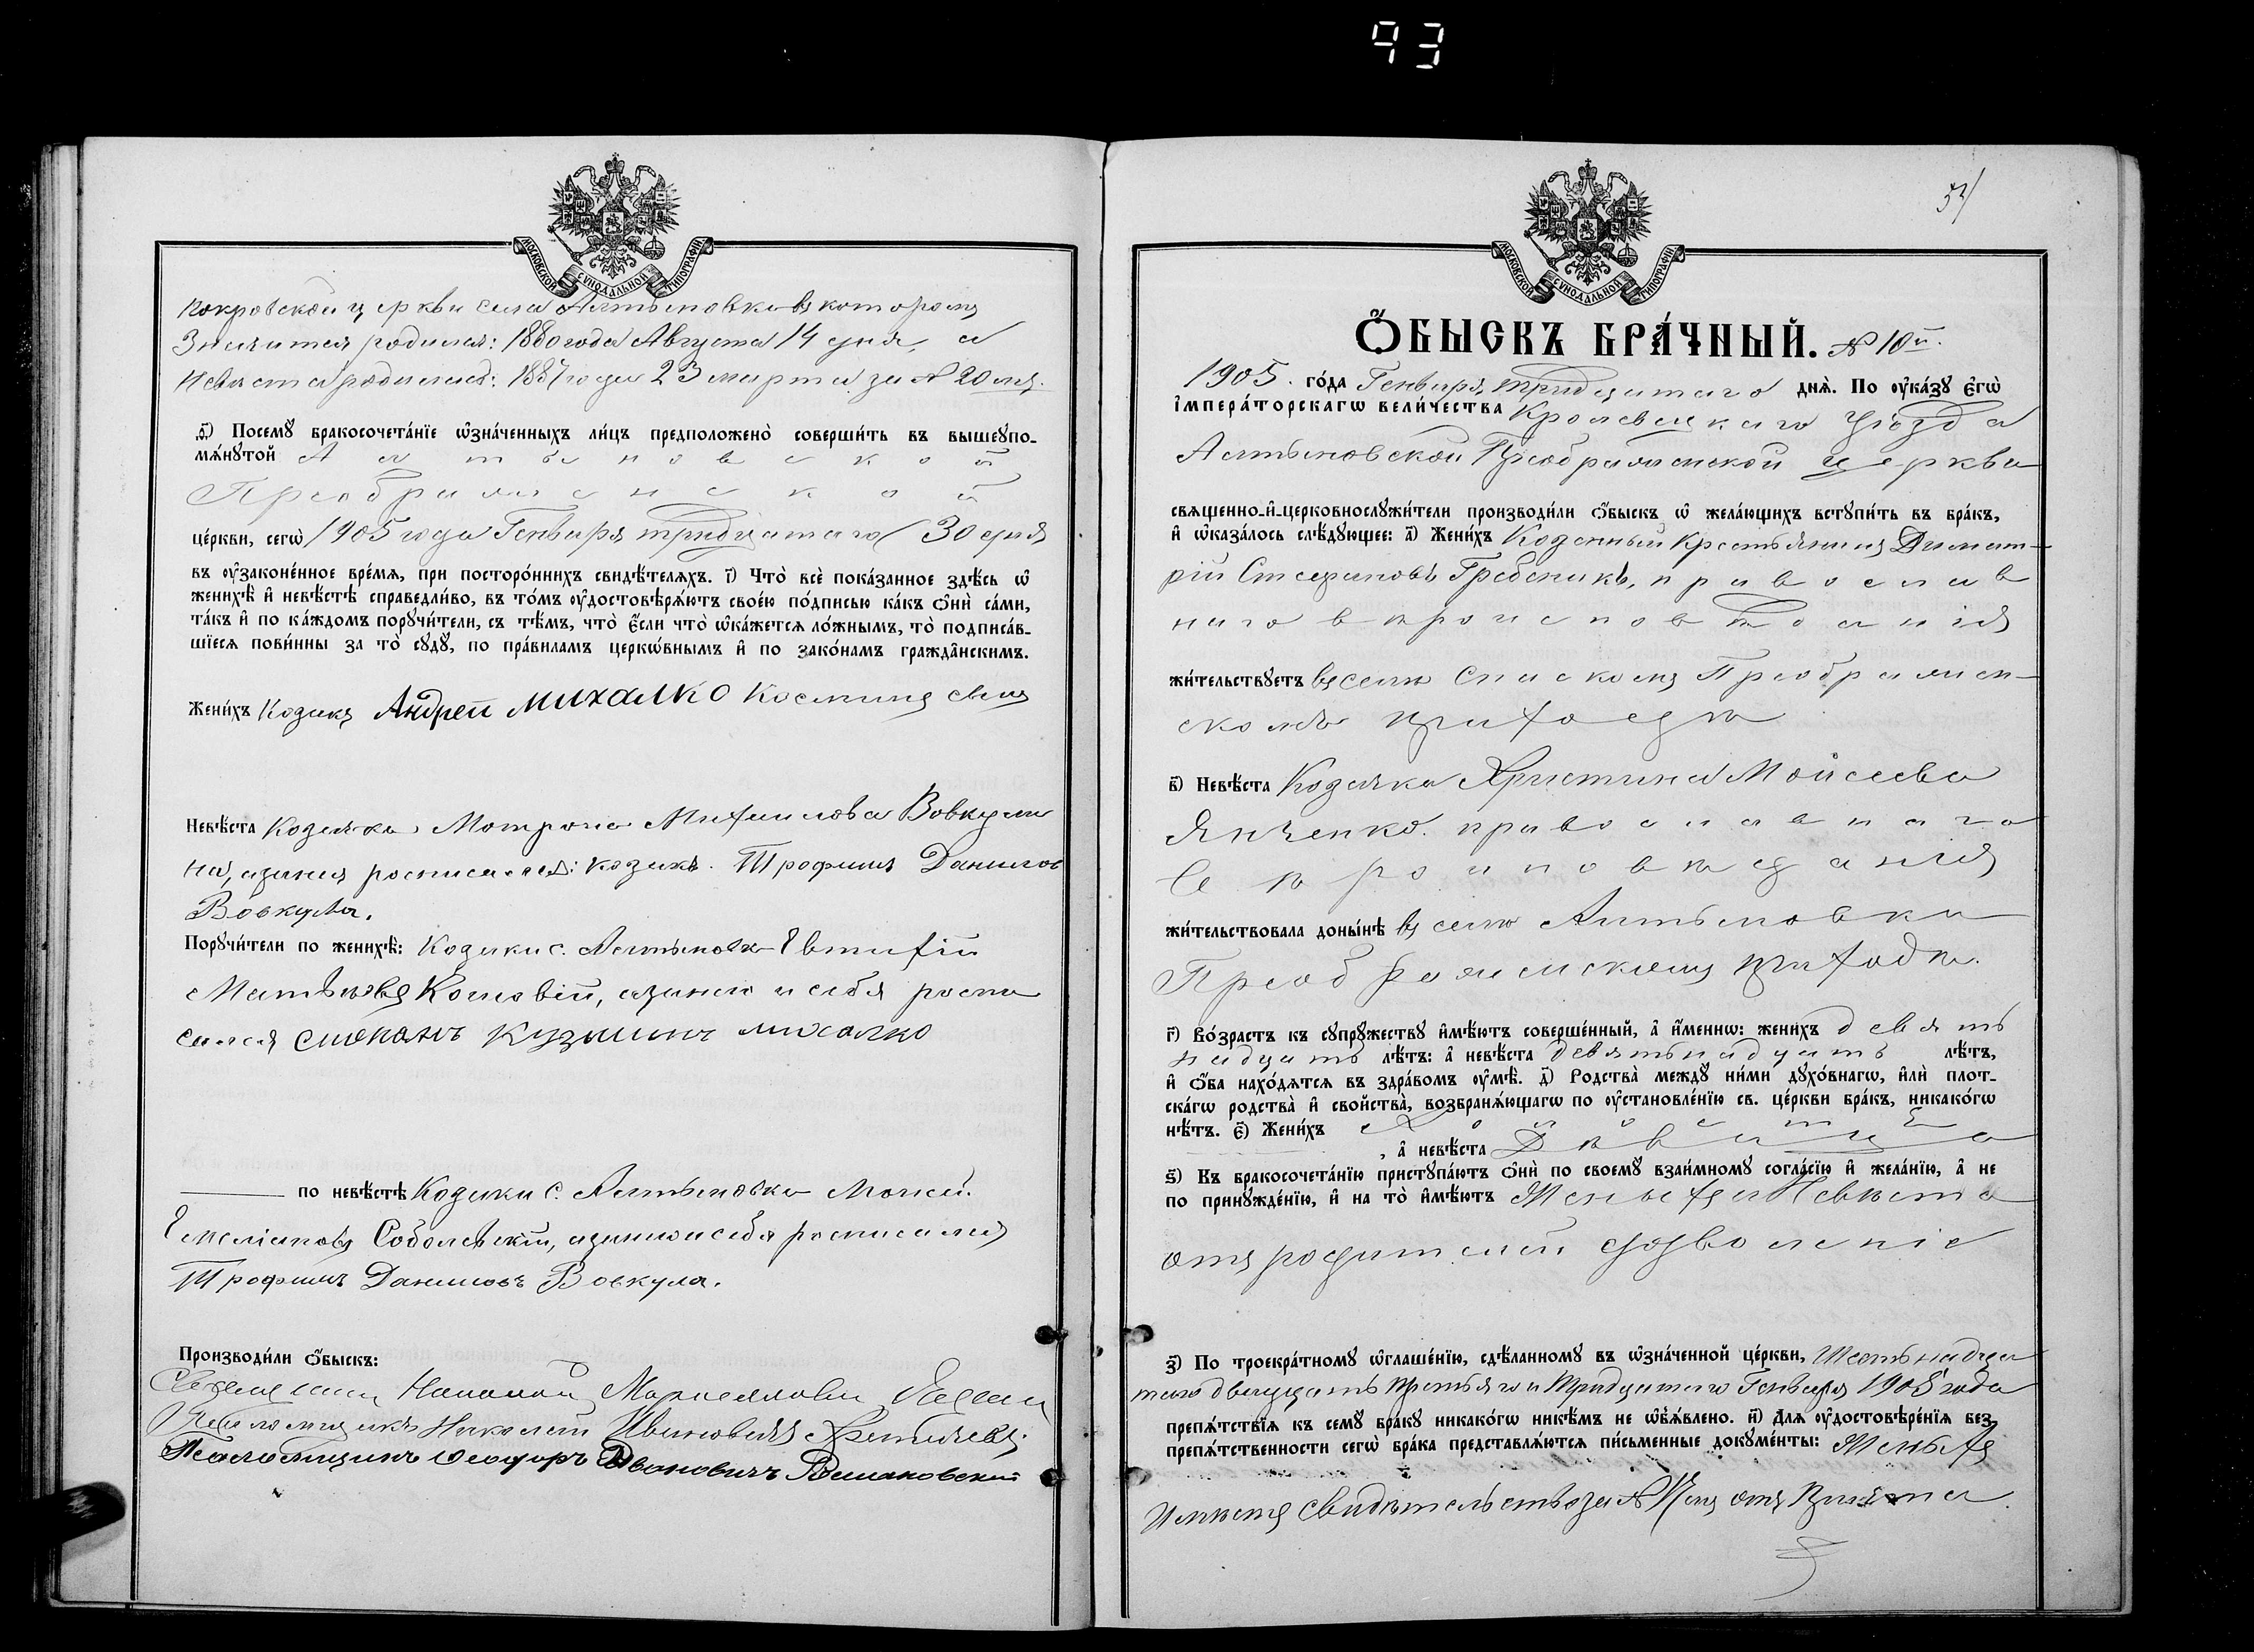 93
МОСКОВСКОЙ СѴНОДАЛЬНОЙ ТИПОГРАФІИ
Покровской церкви села Алтыновки въ которомъ
Значится родился: 1880 года Августа 14 дня, а
Невеста родилась: 1887 года 23 марта за № 20 мъ.
Посемꙋ бракосочета́нїе ѡзна́ченныхъ ли́цъ предположено̀ соверши́ть въ вышеꙋпо-
мѧ́нꙋтой Алтыновской
Преображенской
це́ркви, сегѡ̀ 1905 года Генваря тридцатаго 30 дня
въ ᲂу҆законе́нное вре́мѧ, при посторо́ннихъ свидѣ́телѧхъ. і҃) Что̀ всѐ пока́занное здѣ́сь ѡ҆
женихѣ̀ и҆ невѣ́стѣ справедли́во, въ то́мъ ᲂу҆достовѣрѧ́ютъ свое́ю по́дписью ка́къ ѻ҆нѝ са́ми,
та́къ и҆ по ка́ждомъ порꙋчи́тели, съ тѣ́мъ, что̀ є҆́сли что̀ ѡ҆ка́жетсѧ ло́жнымъ, то̀ подписа́в-
шїесѧ пови́нны за то̀ сꙋдꙋ̀, по пра́виламъ церко́внымъ и҆ по зако́намъ гражда́нскимъ.
Жени́хъ Козакъ Андрей михалко Косминъ сынъ
Невѣ́ста Козачка Мотрона Михаилова Вовкули
на, а за нея росписался: козакъ Трофимъ Данилов
Вовкула.
Порꙋчи́тели по женихѣ̀: Козаки с. Алтыновки Евтифій
Матѣевъ, а за него и себя роспи
сался Степанъ Кузминъ михалко
по невѣ́стѣ Козаки с. Алтыновки Моисей
Емеліановъ Соболевскій, а за него и себя росписался
Трофимъ Даниловъ Вовкула.
Производи́ли ѻ҆́быскъ:
Священникъ
Псаломщикъ Николай Ивановичъ
Псаломщикъ Ѳеодоръ Ивановичъ Романовский
МОСКОВСКОЙ СѴНОДАЛЬНОЙ ТИПОГРАФІИ
Ѻ҆́БЫСКЪ БРА́ЧНЫЙ. № 10й.
1905. го́да Генваря, тридцатаго днѧ̀. По ᲂу҆ка́зꙋ є҆гѡ̀
і҆мпера́торскагѡ вели́чества Кролевецкаго уѣзда
Алтыновской Преображенской церкви
свѧще́нно-и҆-церковнослꙋжи́тели производи́ли ѻ҆́быскъ ѡ҆ жела́ющихъ встꙋпи́ть въ бра́къ,
и҆ ѡ҆каза́лось слѣ́дꙋющее: а҃) Жени́хъ Козенный Крестьянинъ Димит-
рій Стефановъ Гребеникъ, православ
наго вѣроисповѣданія
жи́тельствꙋетъ въ селѣ Спаскомъ Преображен-
скомъ приходѣ
в҃) Невѣ́ста Козачка Христина Моисеева
Янченко православнаго
вѣроисповѣданія
жи́тельствовала доны́нѣ въ селѣ Алтыновки
Преображенскомъ приходѣ.
г҃) Во́зрастъ къ сꙋпрꙋ́жествꙋ и҆мѣ́ютъ соверше́нный, а҆ и҆́меннѡ: жени́хъ девят
надцать лѣ́тъ: а҆ невѣ́ста девятьнадцать лѣ́тъ,
и҆ ѻ҆́ба нахо́дѧтсѧ въ здра́вомъ ᲂу҆мѣ̀. д҃) Родства̀ междꙋ̀ ни́ми дꙋхо́внагѡ, и҆лѝ плот-
ска́гѡ родства̀ и҆ сво́йства̀, возбранѧ́ющагѡ по ᲂу҆становле́нїю св. це́ркви бра́къ, никако́гѡ
нѣ́тъ. є҃) Жени́хъ холостъ
, а҆ невѣ́ста Дѣвица
ѕ҃) Къ бракосочета́нїю пристꙋпа́ютъ ѻ҆нѝ по своемꙋ̀ взаи́мномꙋ согла́сїю и҆ жела́нїю, а҆ не
по принꙋжде́нїю, и҆ на то̀ и҆мѣ́ютъ Женихъ и Невѣста
отъ родителей дозволеніе
з҃) По троекра́тномꙋ ѡ҆глаше́нїю, сдѣ́ланномꙋ въ ѡ҆зна́ченной це́ркви, Шестьнадца
таго двадцать третьяго и Тридцатаго Генваря 1905 года
препѧ́тствїѧ къ семꙋ̀ бра́кꙋ никако́гѡ никѣ́мъ не ѡ҆б̾ѧ́влено. и҃) Длѧ ᲂу҆достовѣре́нїѧ без
препѧ́тственности сегѡ̀ бра́ка представлѧ́ютсѧ пи́сьменные докꙋме́нты: Женихъ
Имѣетъ свидѣтельство за № отъ